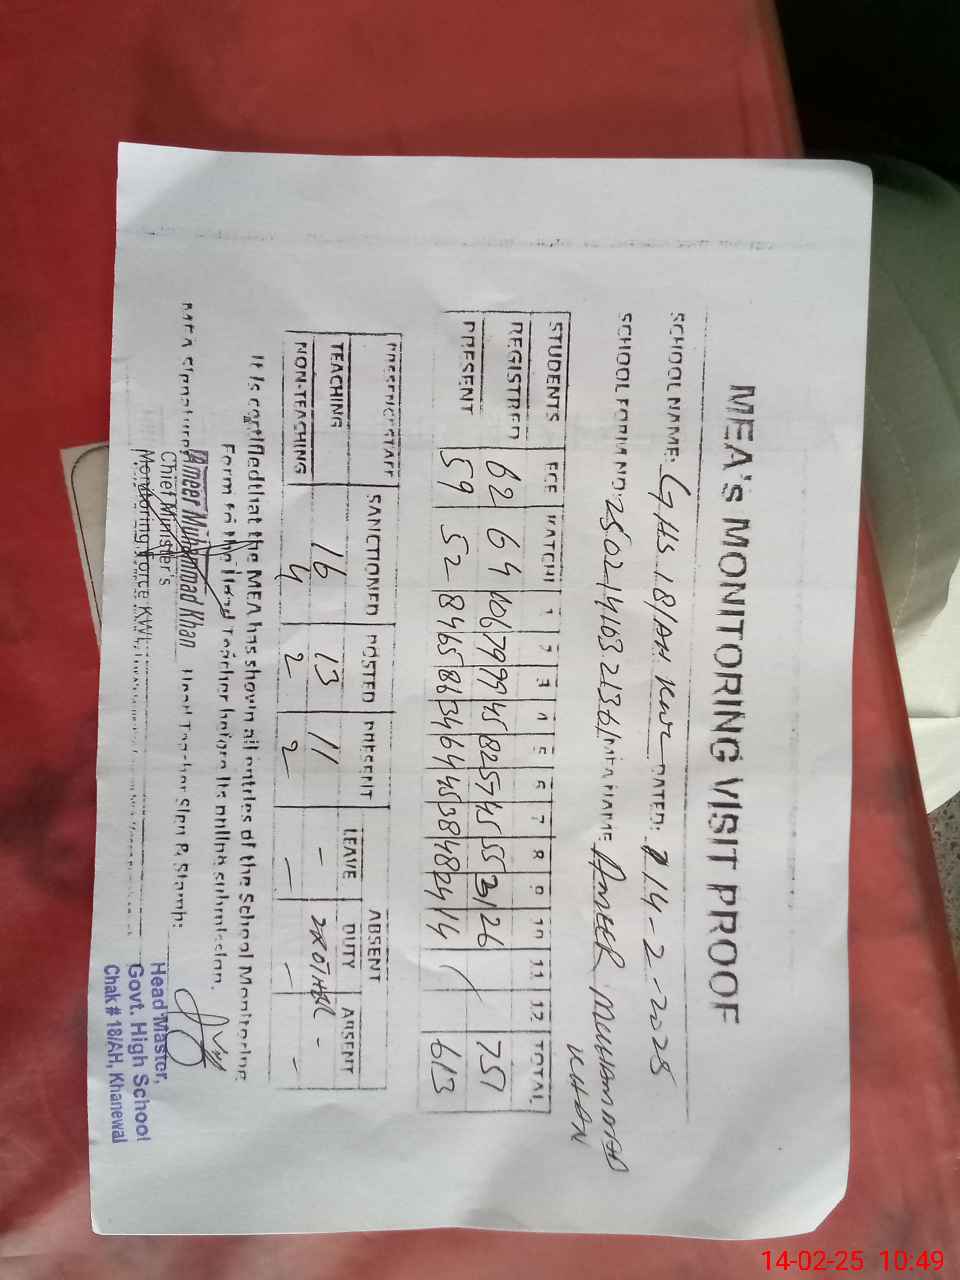 MEA's MONITORING VISIT PROOF
SCHOOL NAME: GHS 18/AH KWL DATED: 14-2-2025
SCHOOL FORM NO: 2502-1463 2136 MEA NAME AMEER MUHAMMAD
KHAN
STUDENTS ECE KATCHI 1 2 3 4 5 6 7 8 9 10 11 12 TOTAL
REGISTRED 62 64 106 79 99 45 82 57 45 55 31 26 751
PRESENT 59 52 84 65 86 34 64 45 38 48 24 14 613
PRESENCE STAFF SANCTIONED POSTED PRESENT ABSENT
LEAVE DUTY ABSENT
TEACHING 16 13 11 - 2 -
NON-TEACHING 4 2 2 - - -
It is certified that the MEA has shown all entries of the School Monitoring
Form to the Head Teacher before its online submission.
MEA Signature: Ameer Muhammad Khan Head Teacher Sign & Stamp:
Chief Minister's
Monitoring Force KWL
Head Master,
Govt. High School
Chak # 18/AH, Khanewal
14-02-25 10:49